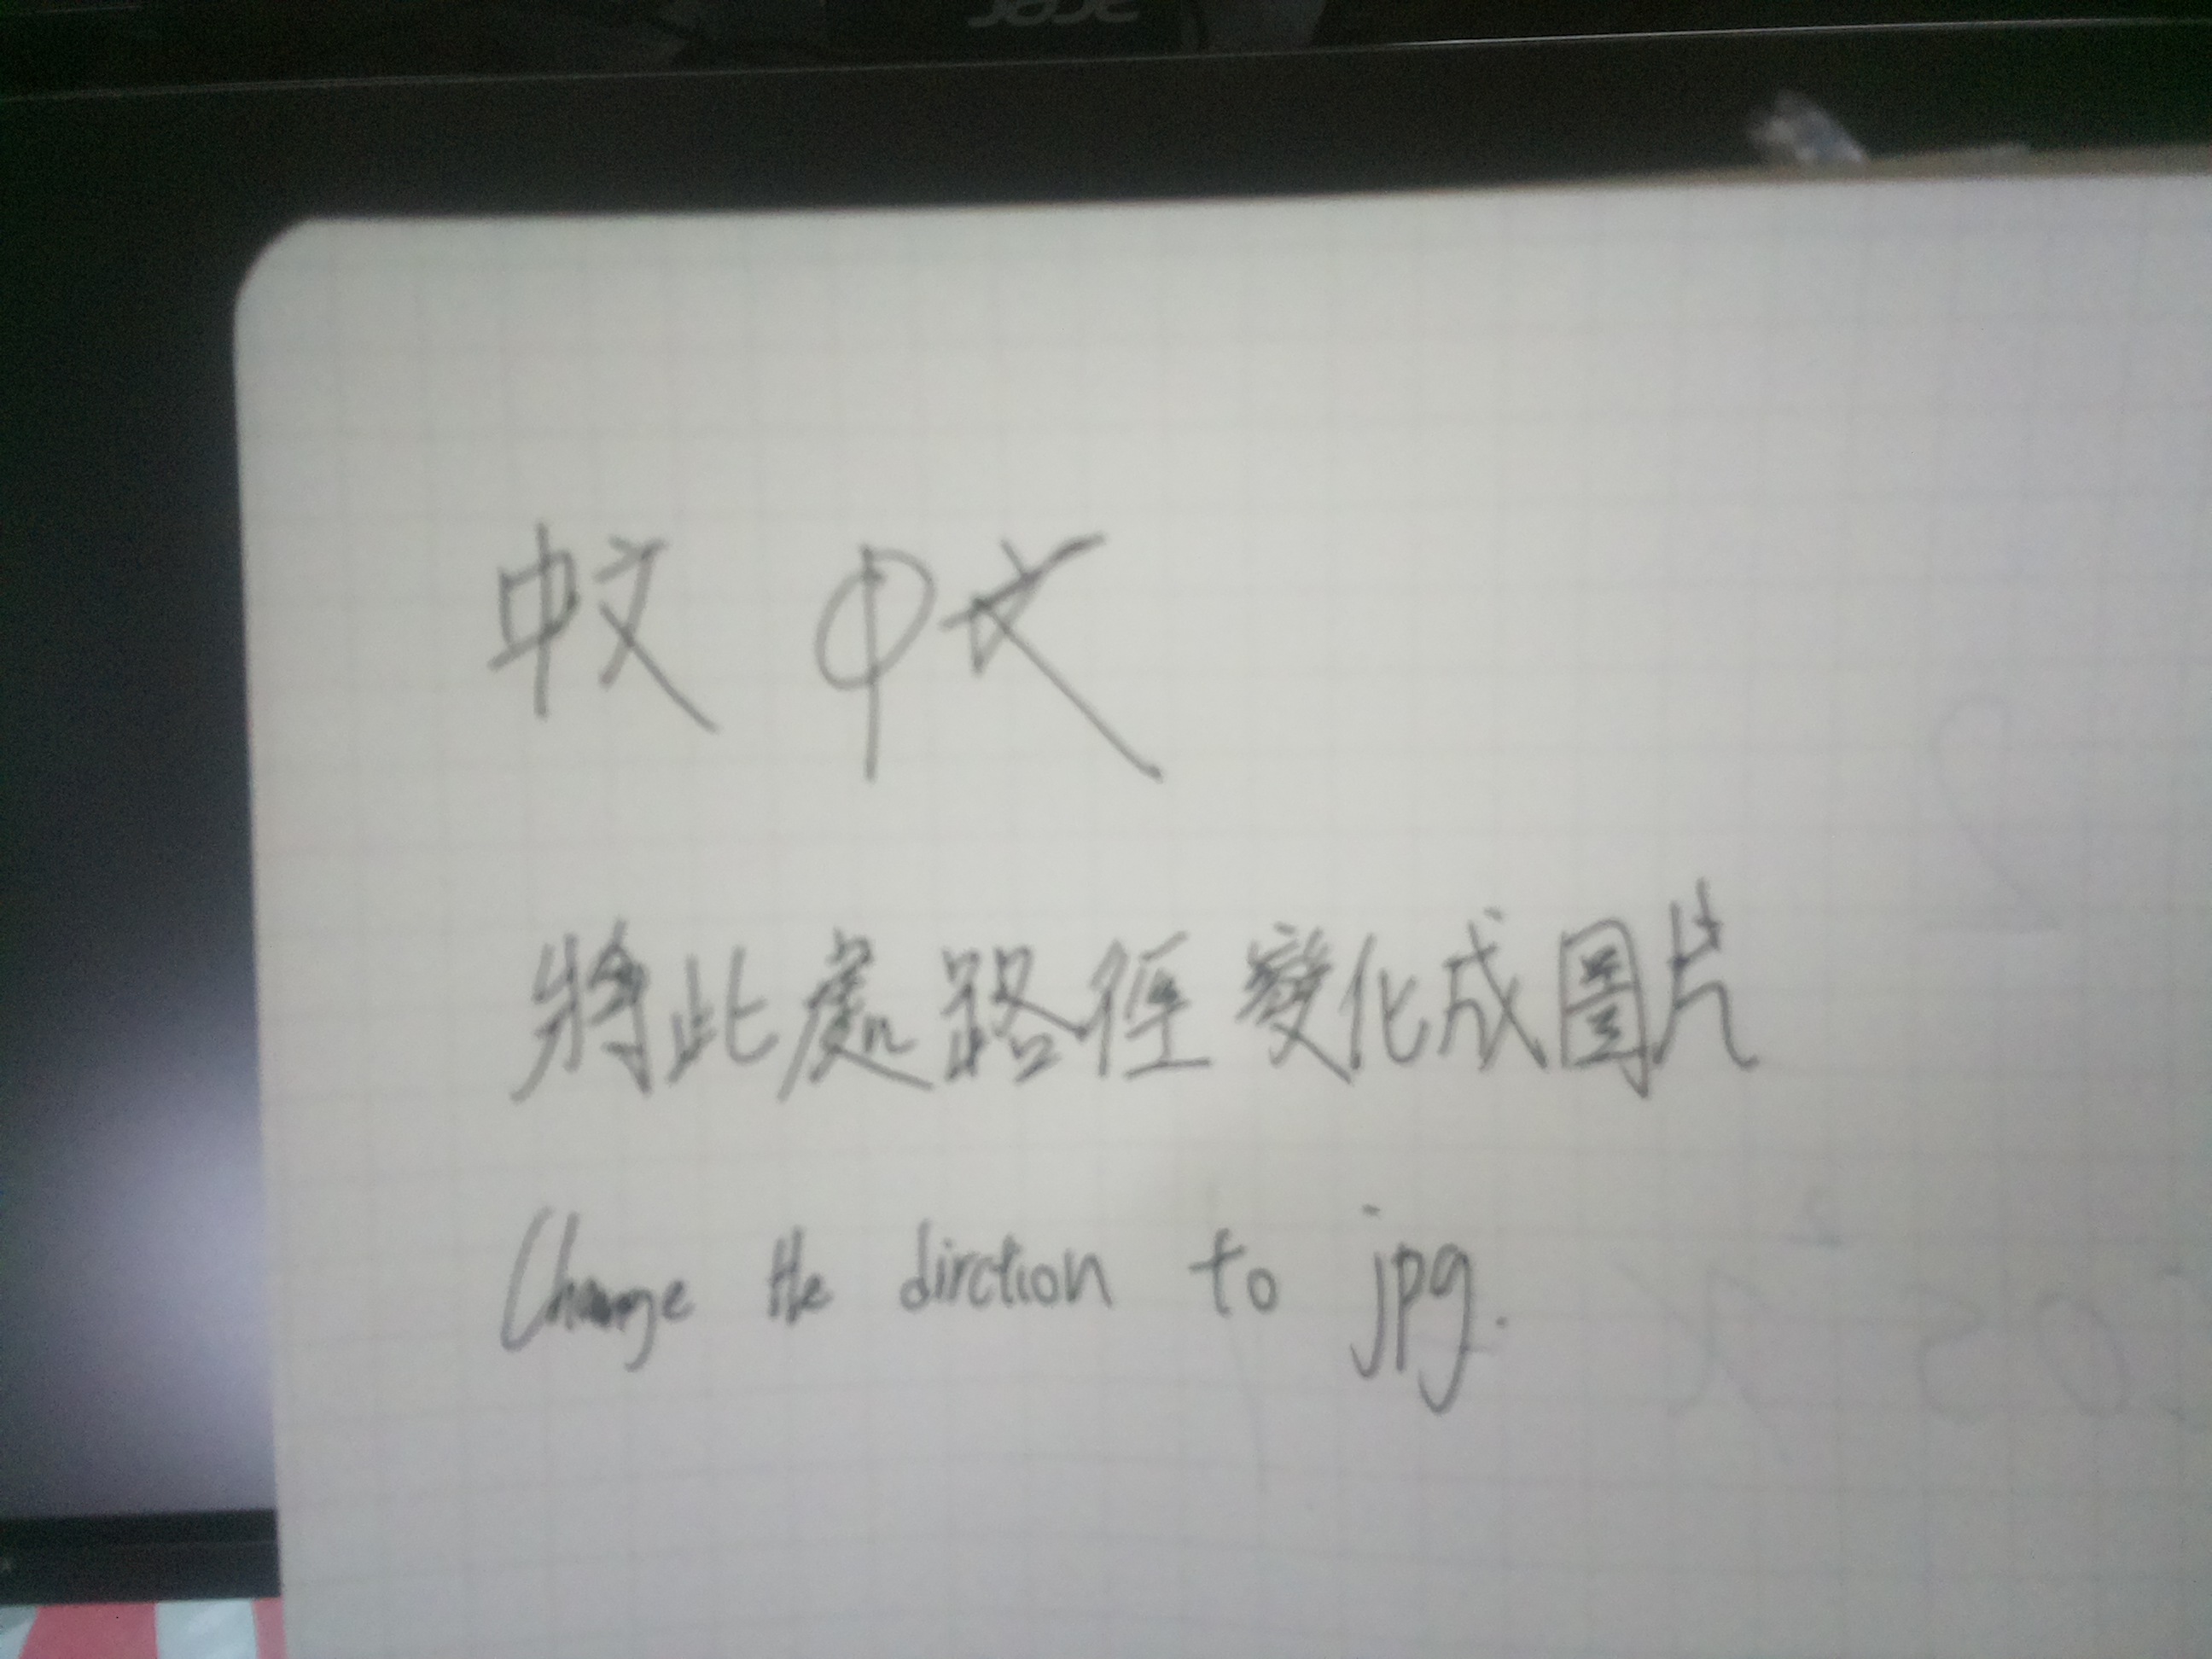 acer
中文 中文
將此處路徑變化成圖片
Change the dirction to jpg.